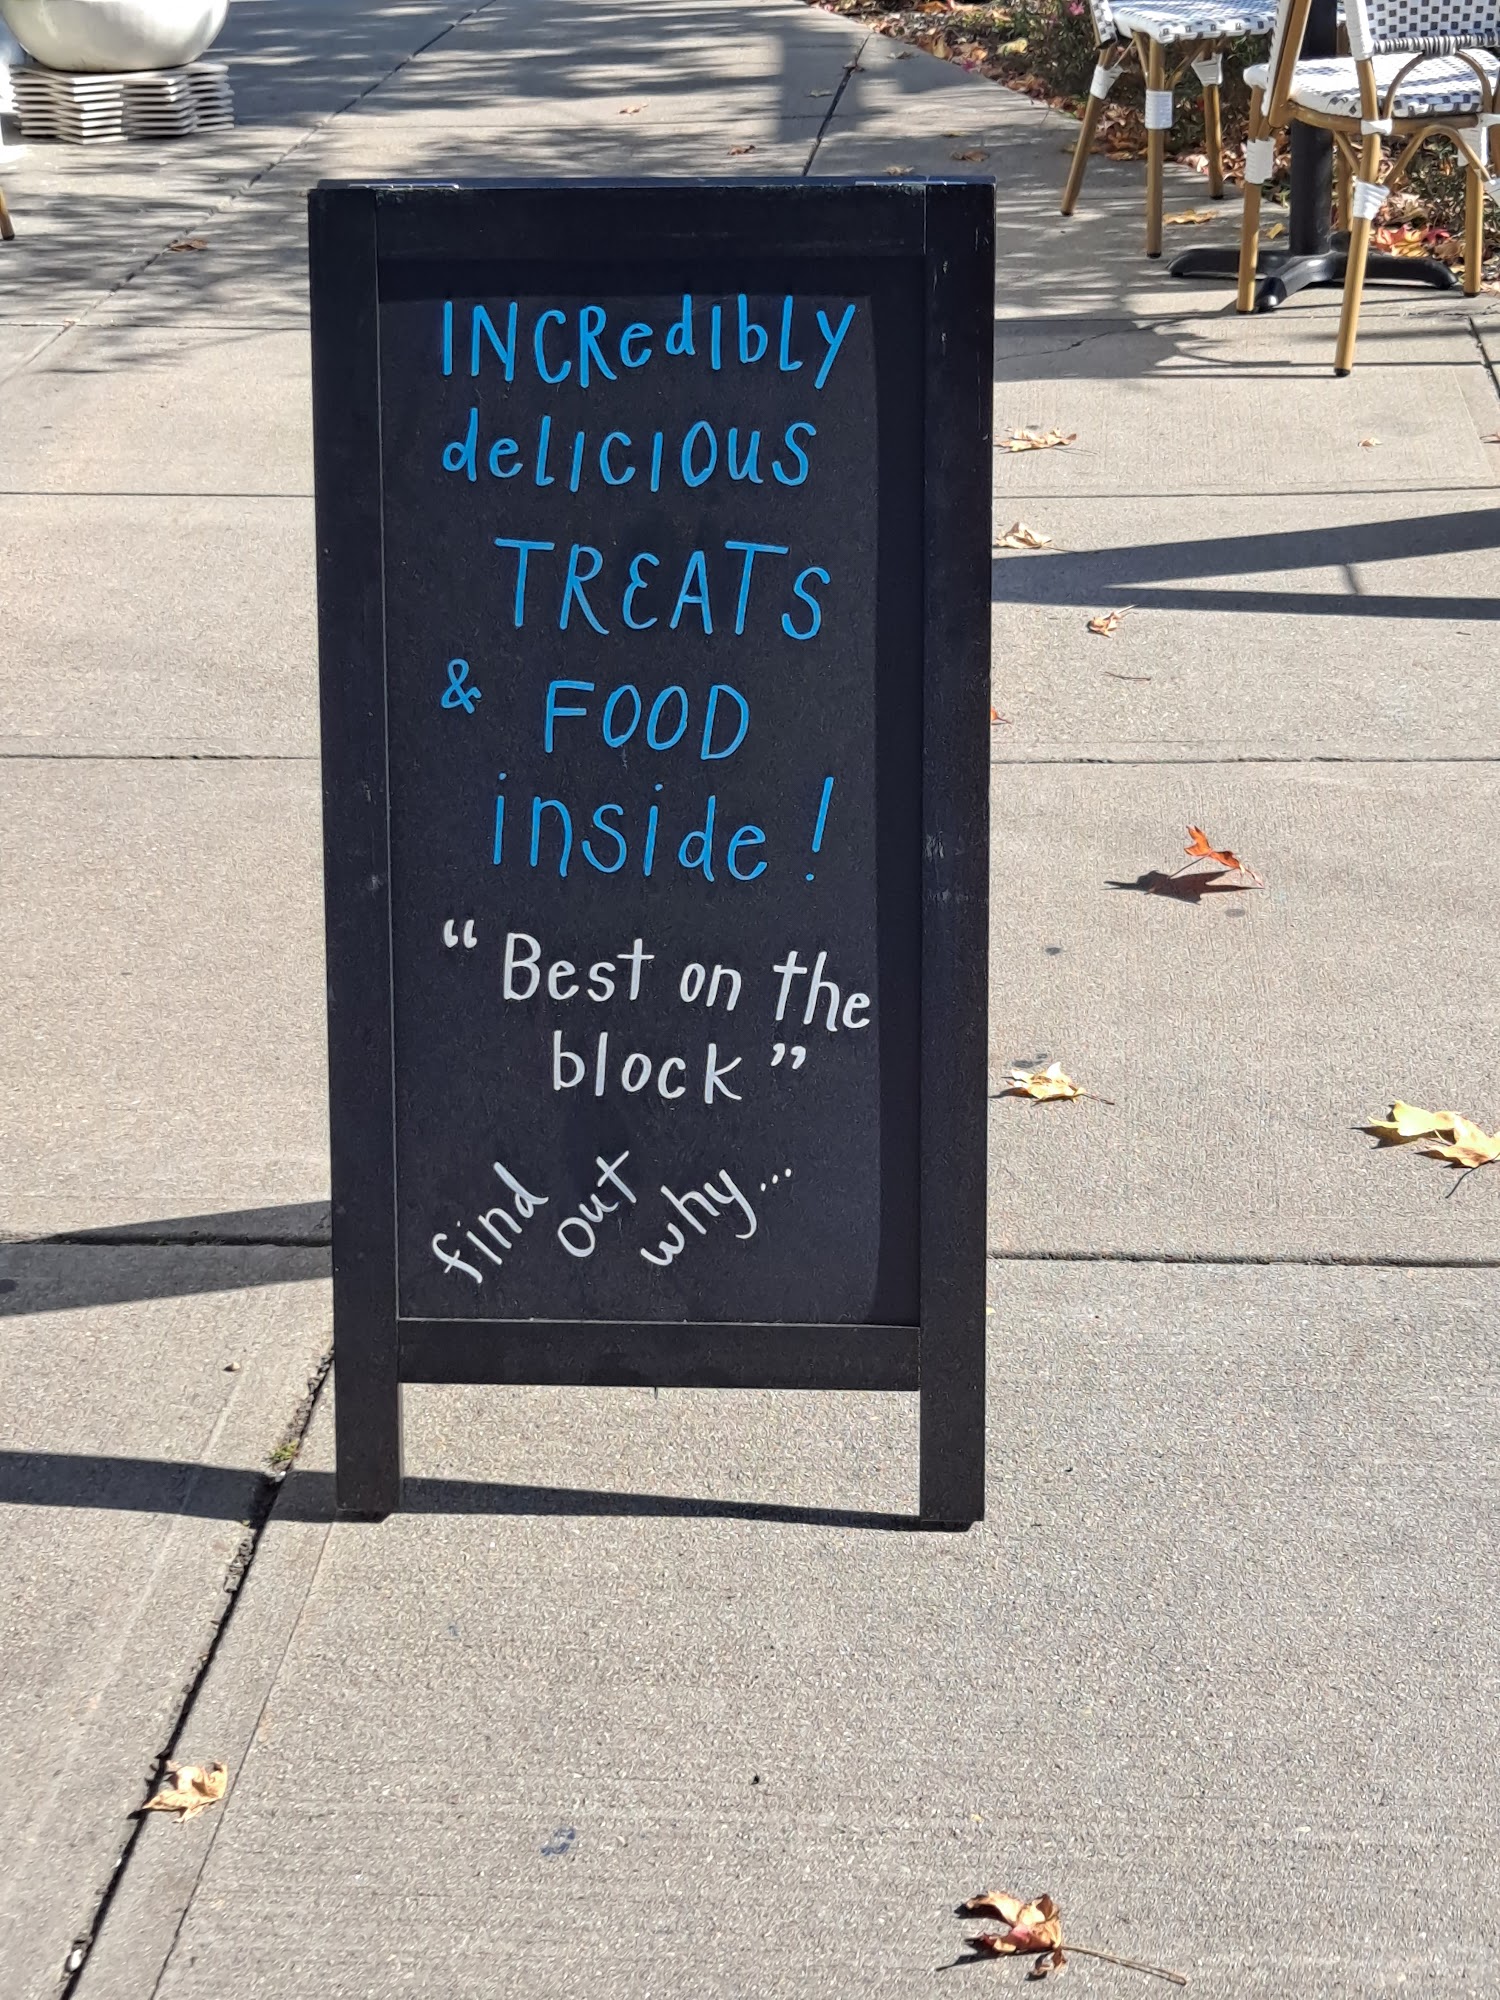 INCRedIbLY
deLICIOUS
TREATS
& FOOD
inside!
“Best on the
block”
find out why...